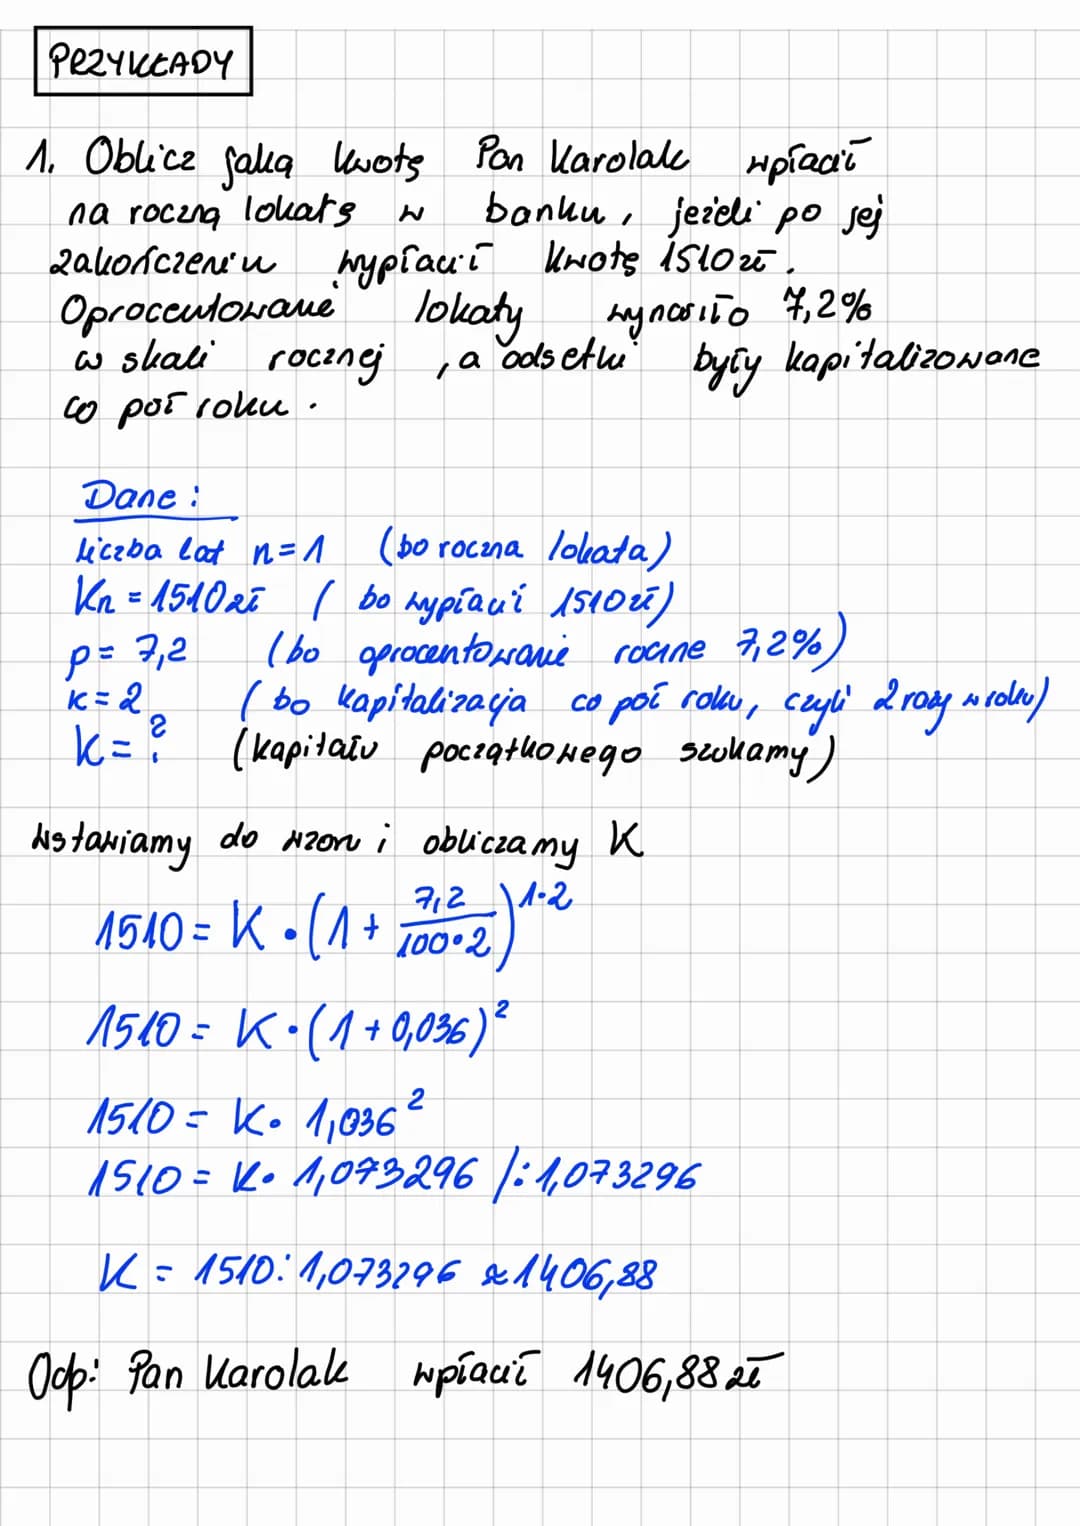 PRZYKŁADY
1. Oblicz jaką kwotę Pan Karolak wpłacił
na roczną lokatę w banku, jeżeli po jej
zakończeniu wypłacił kwotę 1510 zł.
Oprocentowanie lokaty wynosiło 7,2%
w skali rocznej, a odsetki były kapitalizowane
co pół roku.
Dane:
liczba lat n = 1 (bo roczna lokata)
Kn = 1510 zł (bo wypłacił 1510 zł)
p = 7,2 (bo oprocentowanie roczne 7,2%)
k = 2 (bo kapitalizacja co pół roku, czyli 2 razy w roku)
K = ? (kapitału początkowego szukamy)
Wstawiamy do wzoru i obliczamy K
1510 = K · (1 + 7,2/100·2)^1·2
1510 = K · (1 + 0,036)²
1510 = K · 1,036²
1510 = K · 1,073296 /: 1,073296
K = 1510 : 1,073296 ≈ 1406,88
Odp: Pan Karolak wpłacił 1406,88 zł